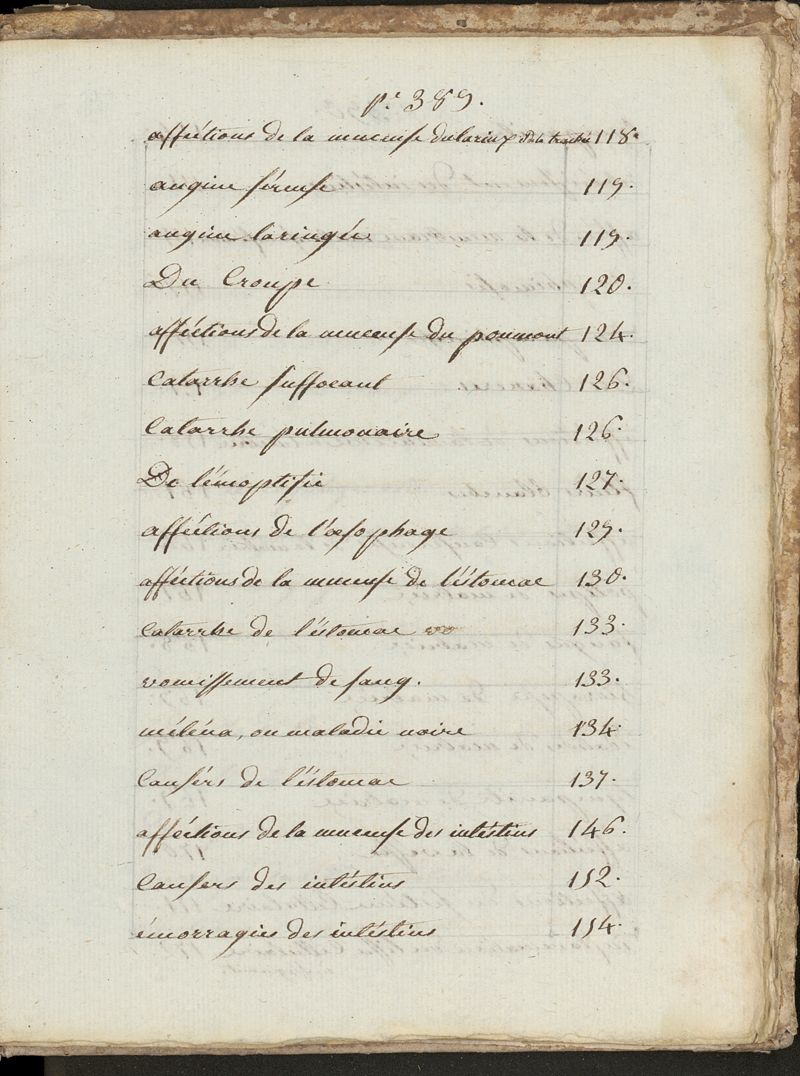 pe. 389.
affections de la muceuse du larinx & de la traché 118.
angine séreuse 119.
angine laringée 119.
Du Croupe 120.
afféctions de la muceuse du poumont 124.
Catarrhe suffocant 126.
Catarrhe pulmonaire 126.
De l'émoptisie 127.
afféctions de l'œsophage 129.
afféctions de la muceuse de l'éstomac 130.
Catarrhe de l'éstomac 133.
vomissement de sang. 133.
méléna, ou maladie noire 134.
Cansérs de l'éstomac 137.
afféctions de la muceuse des intéstins 146.
Cansers des intéstins 152.
émorragies des intéstins 154.